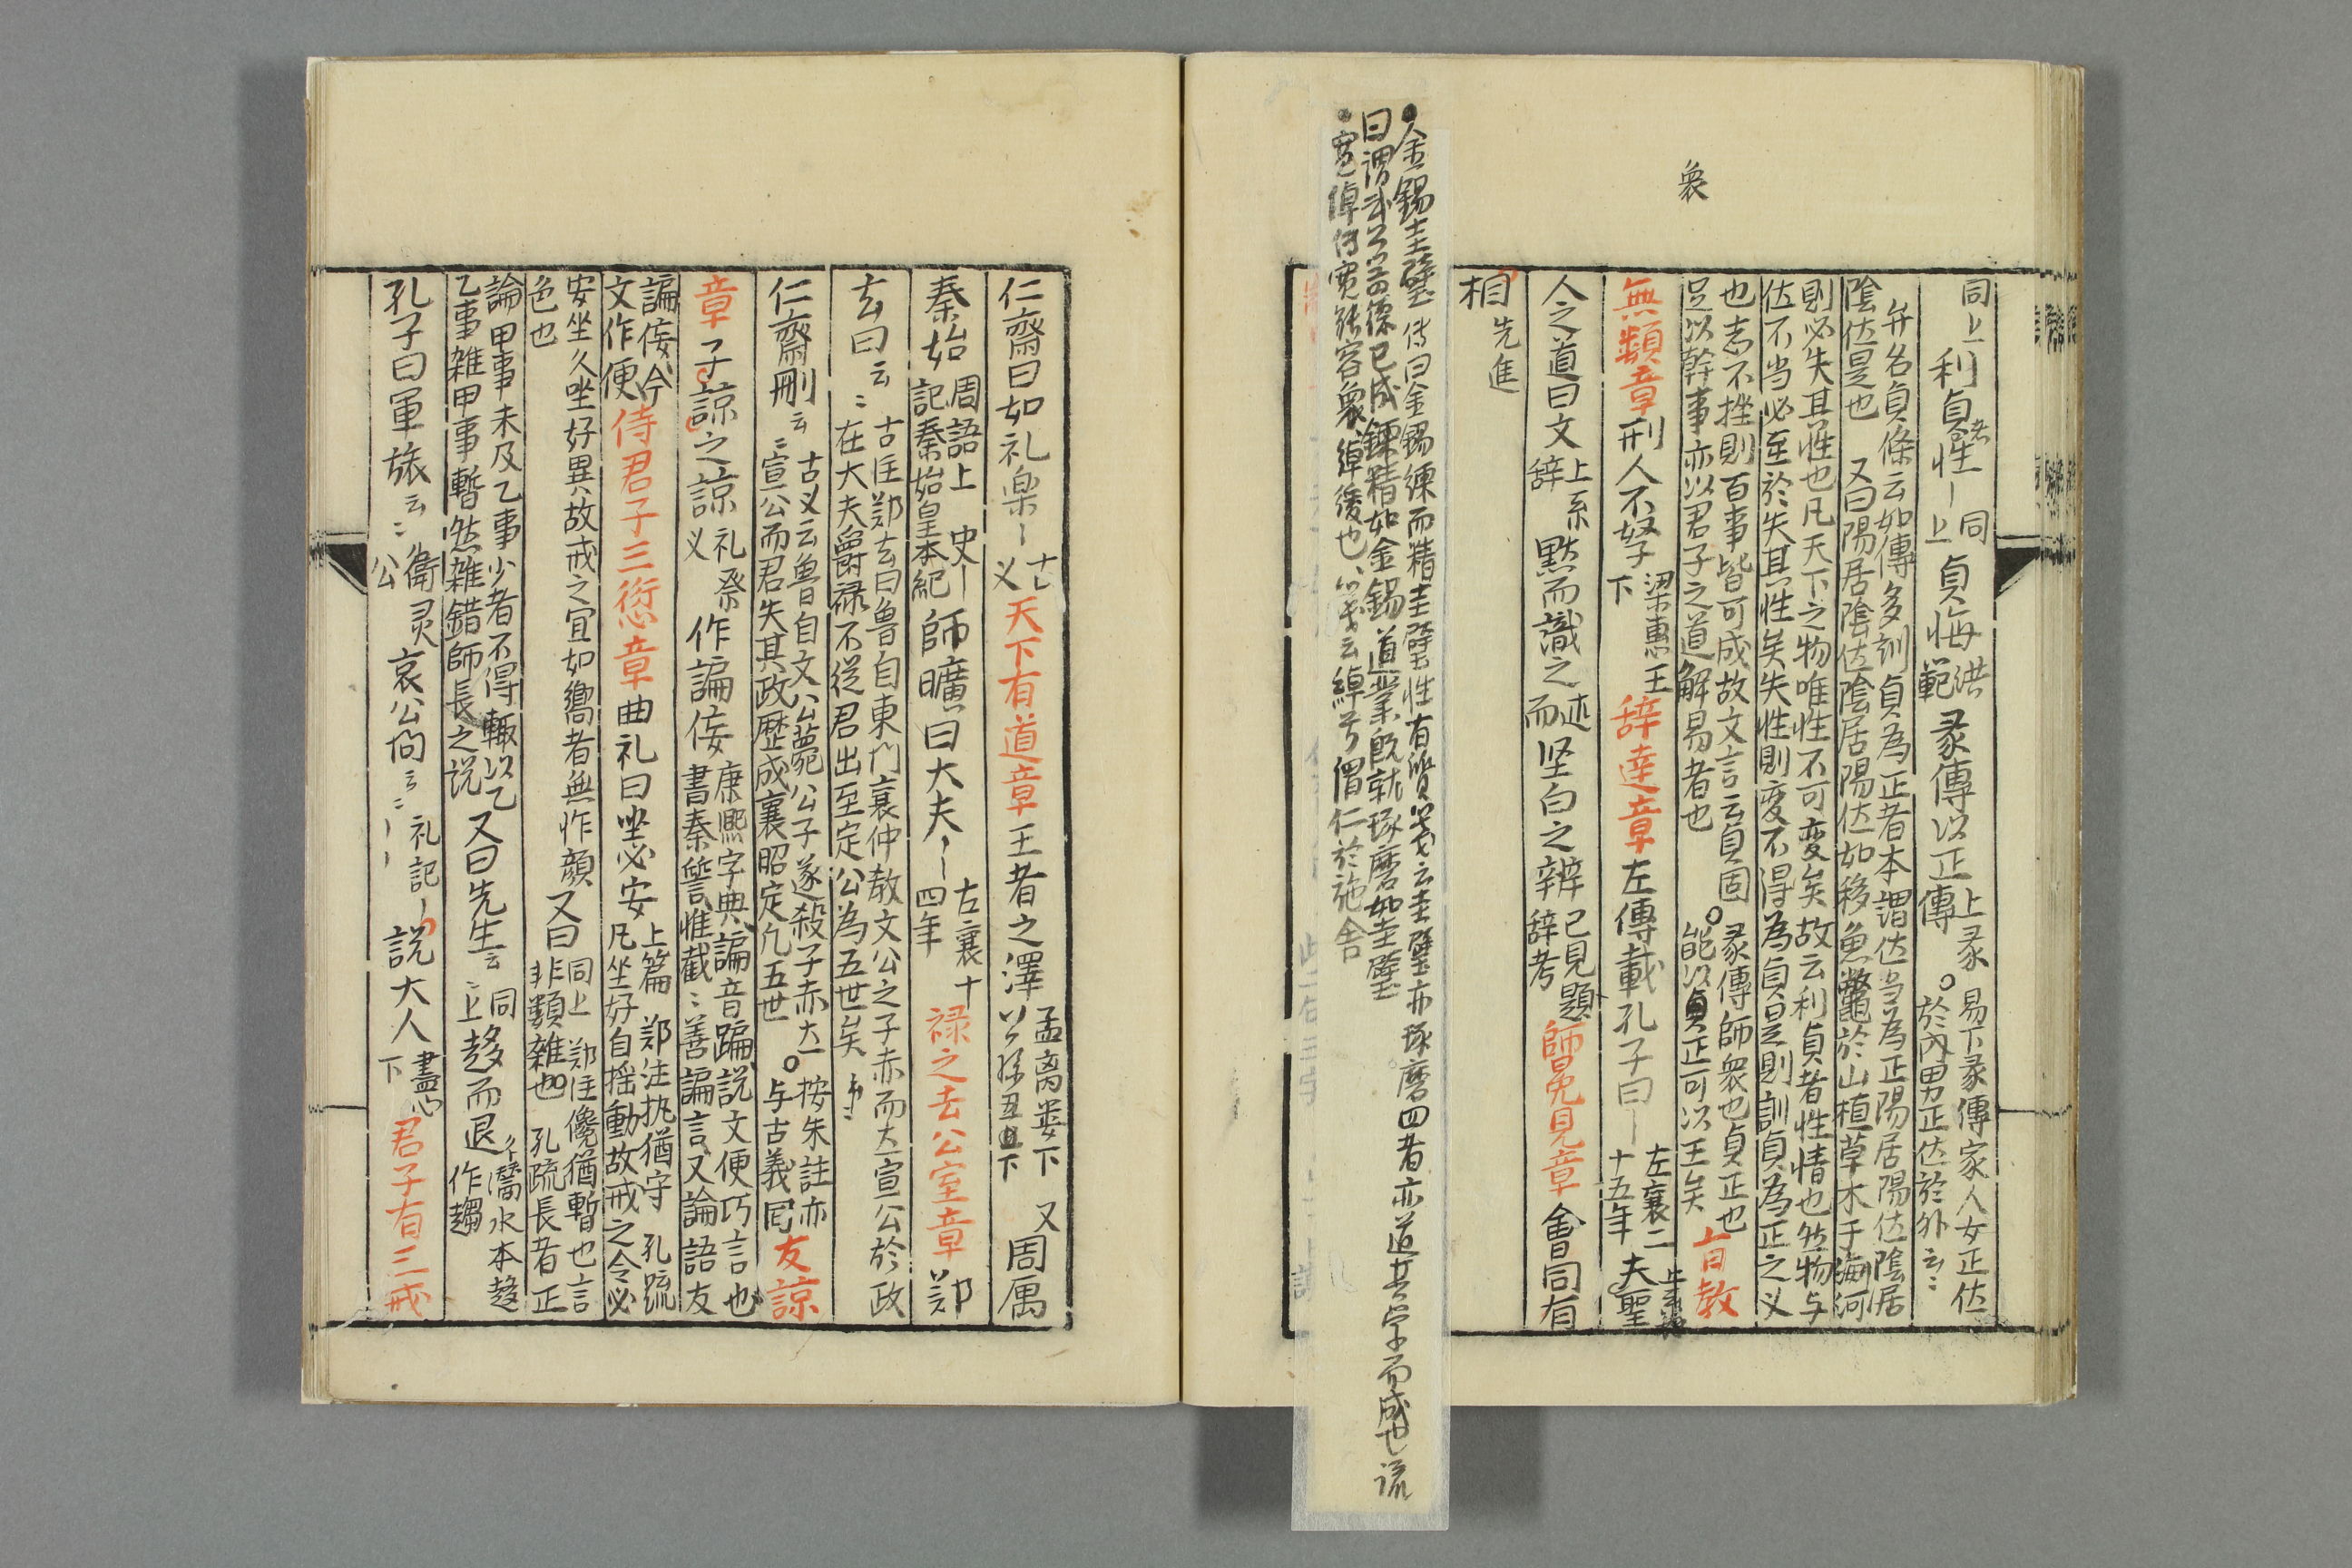 衆
同上利貞者性ー同上貞悔洪範彖傳以正上彖傳易下彖傳家人女正位
於内男正位於外云〻
弁名貞條云如傳多訓貞為正者本謂位当為正陽居陽位陰居
陰位是也又曰陽居陰位陰居陽位如移魚鼈於山植草木于海河
則必失其性也凡天下之物唯性不可変矣故云利貞者性情也然物与
位不当必至於失其性矣失性則変不得為貞是則訓貞為正之义
也志不挫則百事皆可成故文言云貞固彖傳師衆也貞正也
足以幹事亦以君子之道解易者也能以貞正可以王矣有教
無類章刑人不孥梁惠王下辞達章左傳載孔子曰ー左襄二十五年夫聖
人之道曰文上系辞黙而識之述而坚白之辨已見題辞考師冕見章會同有
相先進
金錫圭璧傳曰金錫練而精圭璧性有質箋云圭璧亦琢磨四者亦道其学而成也疏
曰謂武公器德已成鍊精如金錫道業既就琢磨如圭璧
寛綽傳寛能容衆綽緩也箋云綽兮謂仁於施舍
仁齋曰如礼楽ー古义天下有道章王者之澤孟离娄下公孫丑上下又周厲
秦始周語上史ー記秦始皇本紀師曠曰大夫ーー左襄十四年禄之去公室章鄭
玄曰云〻古注鄭玄曰魯自東門襄仲殺文公之子赤而立宣公於政
在大夫爵禄不従君出至定公為五世矣
仁齋刪云〻古义云魯自文公薨公子遂殺子赤立宣公而君失其政歴成襄昭定凡五世按朱註亦与古義同友諒
章子諒之諒礼祭义作諞佞康熙字典諞音蹁説文便巧言也
書秦誓惟截〻善諞言又論語友
諞佞今文作便侍君子三愆章曲礼曰坐必安上篇鄭注执猶守孔疏
凡坐好自揺動故戒之令必
安坐久坐好異故戒之宜如嚮者無怍顏色也又曰同上鄭注儳猶暫也言
非類雜也孔疏長者正
論甲事未及乙事少者不得輙以乙
乙事雑甲事暫然雑錯師長之説又曰先生云〻同上趍而退
作趨
孔子曰軍旅云〻衞灵公哀公问云〻礼記ー説大人盡心下君子有三戒